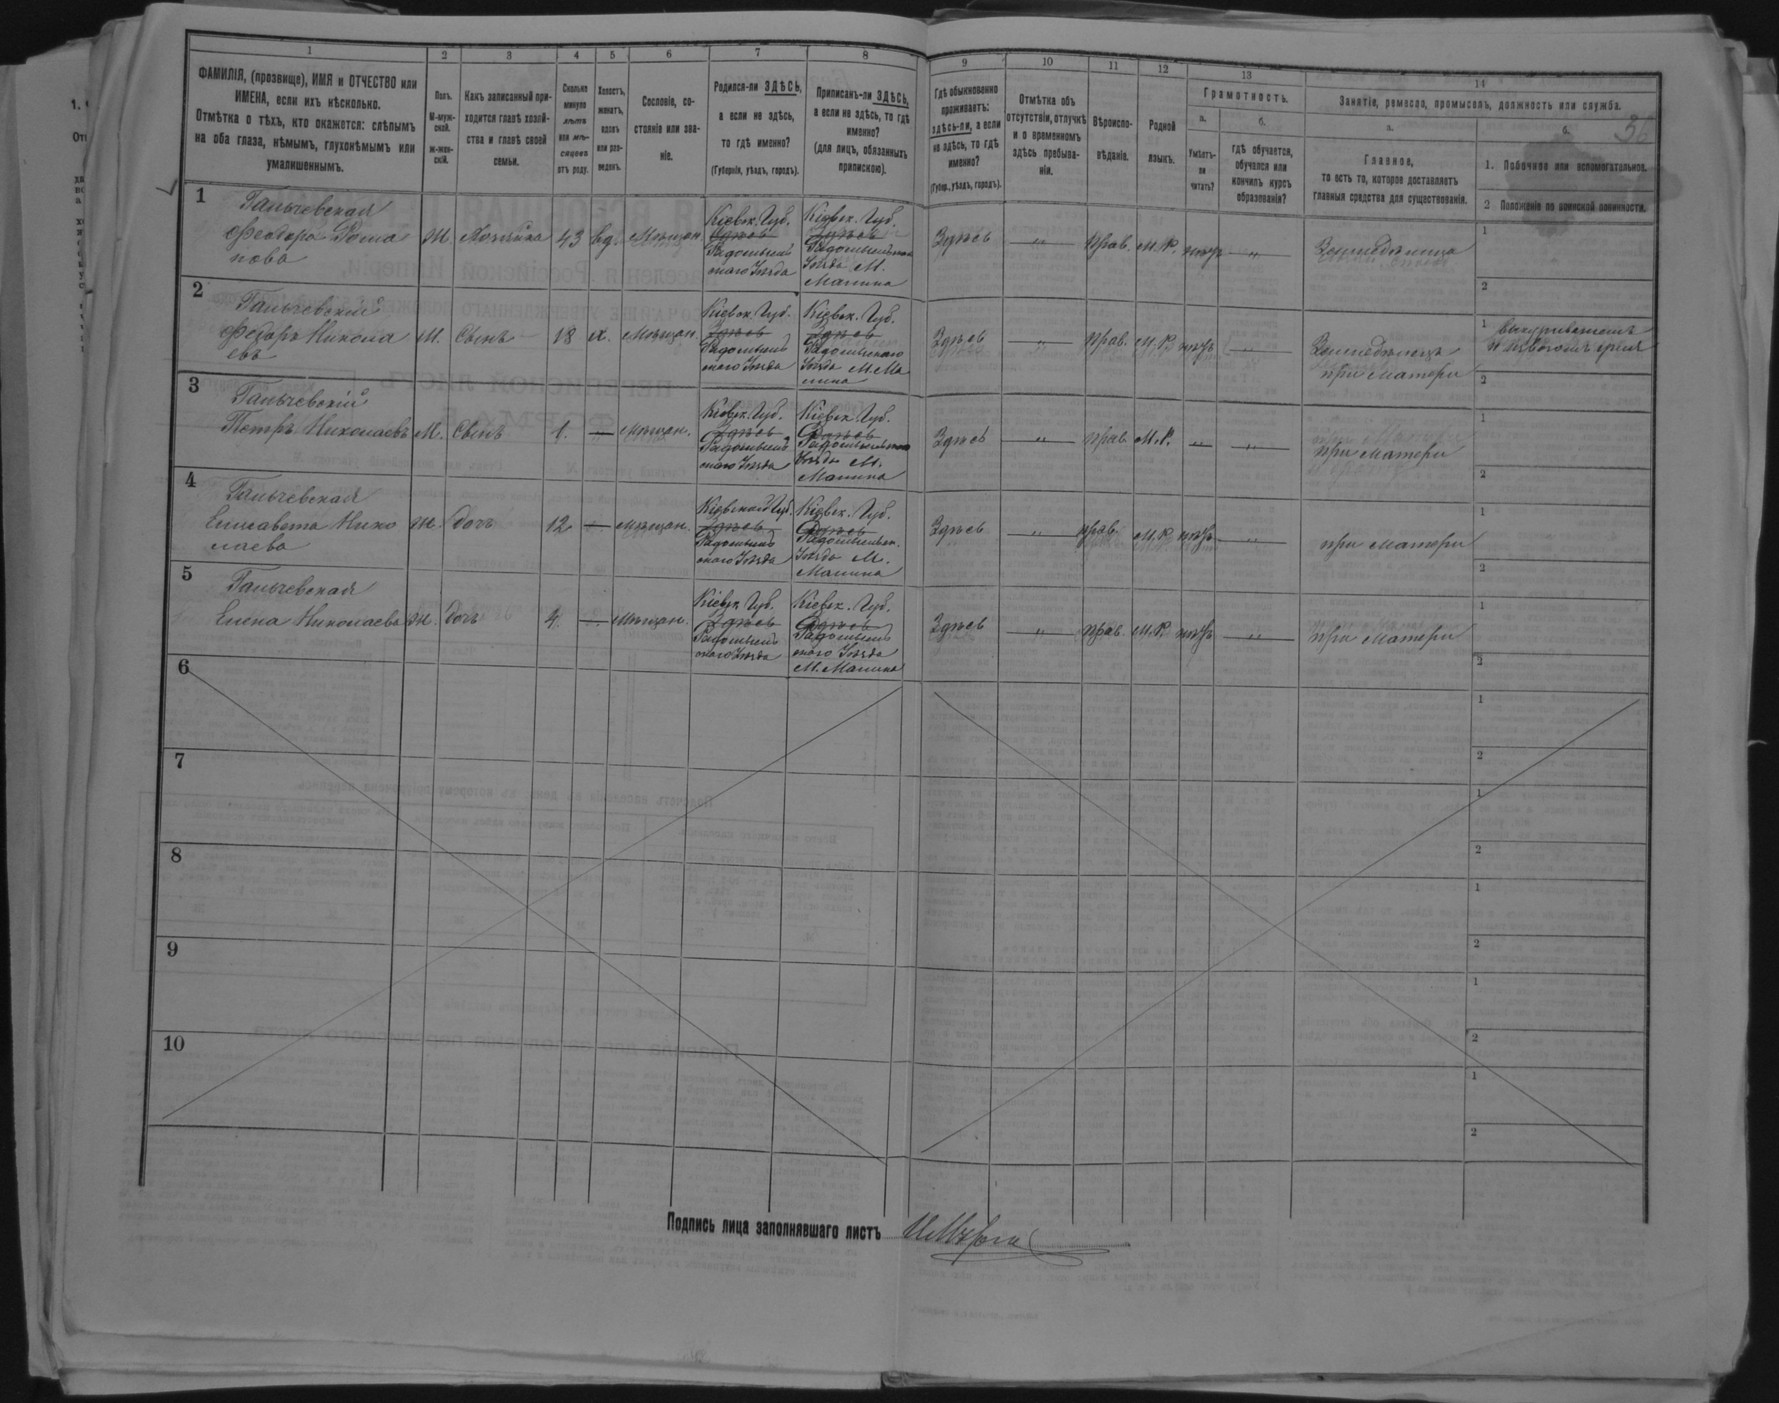 1 2 3 4 5 6 7 8
ФАМИЛІЯ, (прозвище), ИМЯ и ОТЧЕСТВО или
ИМЕНА, если ихъ нѣсколько.
Отмѣтка о тѣхъ, кто окажется: слѣпымъ
на оба глаза, нѣмымъ, глухонѣмымъ или
умалишеннымъ.
Полъ.
М-муж-
ской.
Ж-жен-
скій.
Какъ записанный при-
ходится главѣ хозяй-
ства и главѣ своей
семьи.
Сколько
минуло
лѣтъ
или мѣ-
сяцевъ
отъ роду.
Холостъ,
женатъ,
вдовъ
или раз-
веденъ.
Сословіе, со-
стояніе или зва-
ніе.
Родился-ли ЗДѢСЬ,
а если не здѣсь,
то гдѣ именно?
(Губернія, уѣздъ, городъ).
Приписанъ-ли ЗДѢСЬ,
а если не здѣсь, то гдѣ
именно?
(для лицъ, обязанныхъ
припискою).
9 10 11 12 13 14
Гдѣ обыкновенно
проживаетъ:
здѣсь-ли, а если
не здѣсь, то гдѣ
именно?
(Губер., уѣздъ, городъ).
Отмѣтка объ
отсутствіи, отлучкѣ
и о временномъ
здѣсь пребыва-
ніи.
Вѣроиспо-
вѣданіе.
Родной
языкъ.
Грамотность.
а.
Умѣетъ-
ли
читать?
б.
гдѣ обучается,
обучался или
кончилъ курсъ
образованія?
Занятіе, ремесло, промыселъ, должность или служба.
а.
Главное,
то есть то, которое доставляетъ
главныя средства для существованія.
б.
36
1. Побочное или вспомогательное.
2 Положеніе по воинской повинности.
1
Феодора Рома
нова
Ж Хозяйка 43 вд. Мѣщан.
Кіевск. Губ.
Здѣсь
Радомысль
скаго Уѣзда
Кіевск. Губ.
Здѣсь
Уѣзда М.
Малина
Здѣсь " прав. М.Р. нѣтъ "
1
2
2
Федоръ Никола
евъ
М. Сынъ 18 х. Мѣщан.
Кіевск. Губ.
Здѣсь
Радомысль
скаго Уѣзда
Кіевск. Губ.
Здѣсь
Радомысльскаго
Уѣзда М. Ма
лина
Здѣсь " прав. М.Р. нѣтъ "
при матери
1
2
3
Петръ Николаевъ М. Сынъ 1. — Мѣщан.
Кіевск. Губ.
Здѣсь
Радомысль
скаго Уѣзда
Кіевск. Губ.
Здѣсь
Уѣзда М.
Малина
Здѣсь " прав. М.Р. " "
при матери
1
2
4
Елисавета Нико
лаева
Ж. дочь 12 — Мѣщан.
Кіевской Губ.
Здѣсь
Радомысль
скаго Уѣзда
Кіевск. Губ.
Здѣсь
Радомысльск.
Уѣзда М.
Малина
Здѣсь " прав. М.Р. нѣтъ "
при матери
1
2
5
Елена Николаева Ж. дочь 4. — Мѣщан.
Кіевск. Губ.
Здѣсь
Радомысль
скаго Уѣзда
Кіевск. Губ.
Здѣсь
Радомысль
скаго Уѣзда
М. Малина
Здѣсь " прав. М.Р. нѣтъ "
при матери
1
2
6
1
2
7
1
2
8
1
2
9
1
2
10
1
2
Подпись лица заполнявшаго листъ